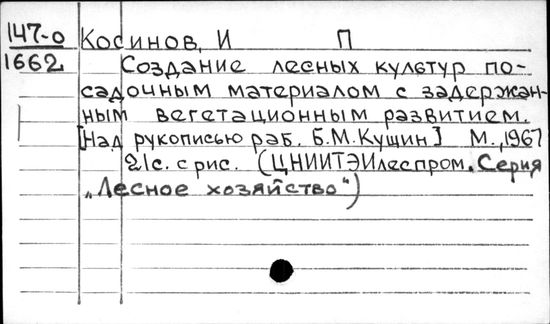 147-0 Косинов, И П
1662 Создание лесных культур по-
садочным материалом с задержан-
ным вегетационным развитием.
[Над рукописью раб. Б.М. Кущин] М., 1967
21с. с рис. (ЦНИИТЭИлеспром. Серия
„Лесное хозяйство")